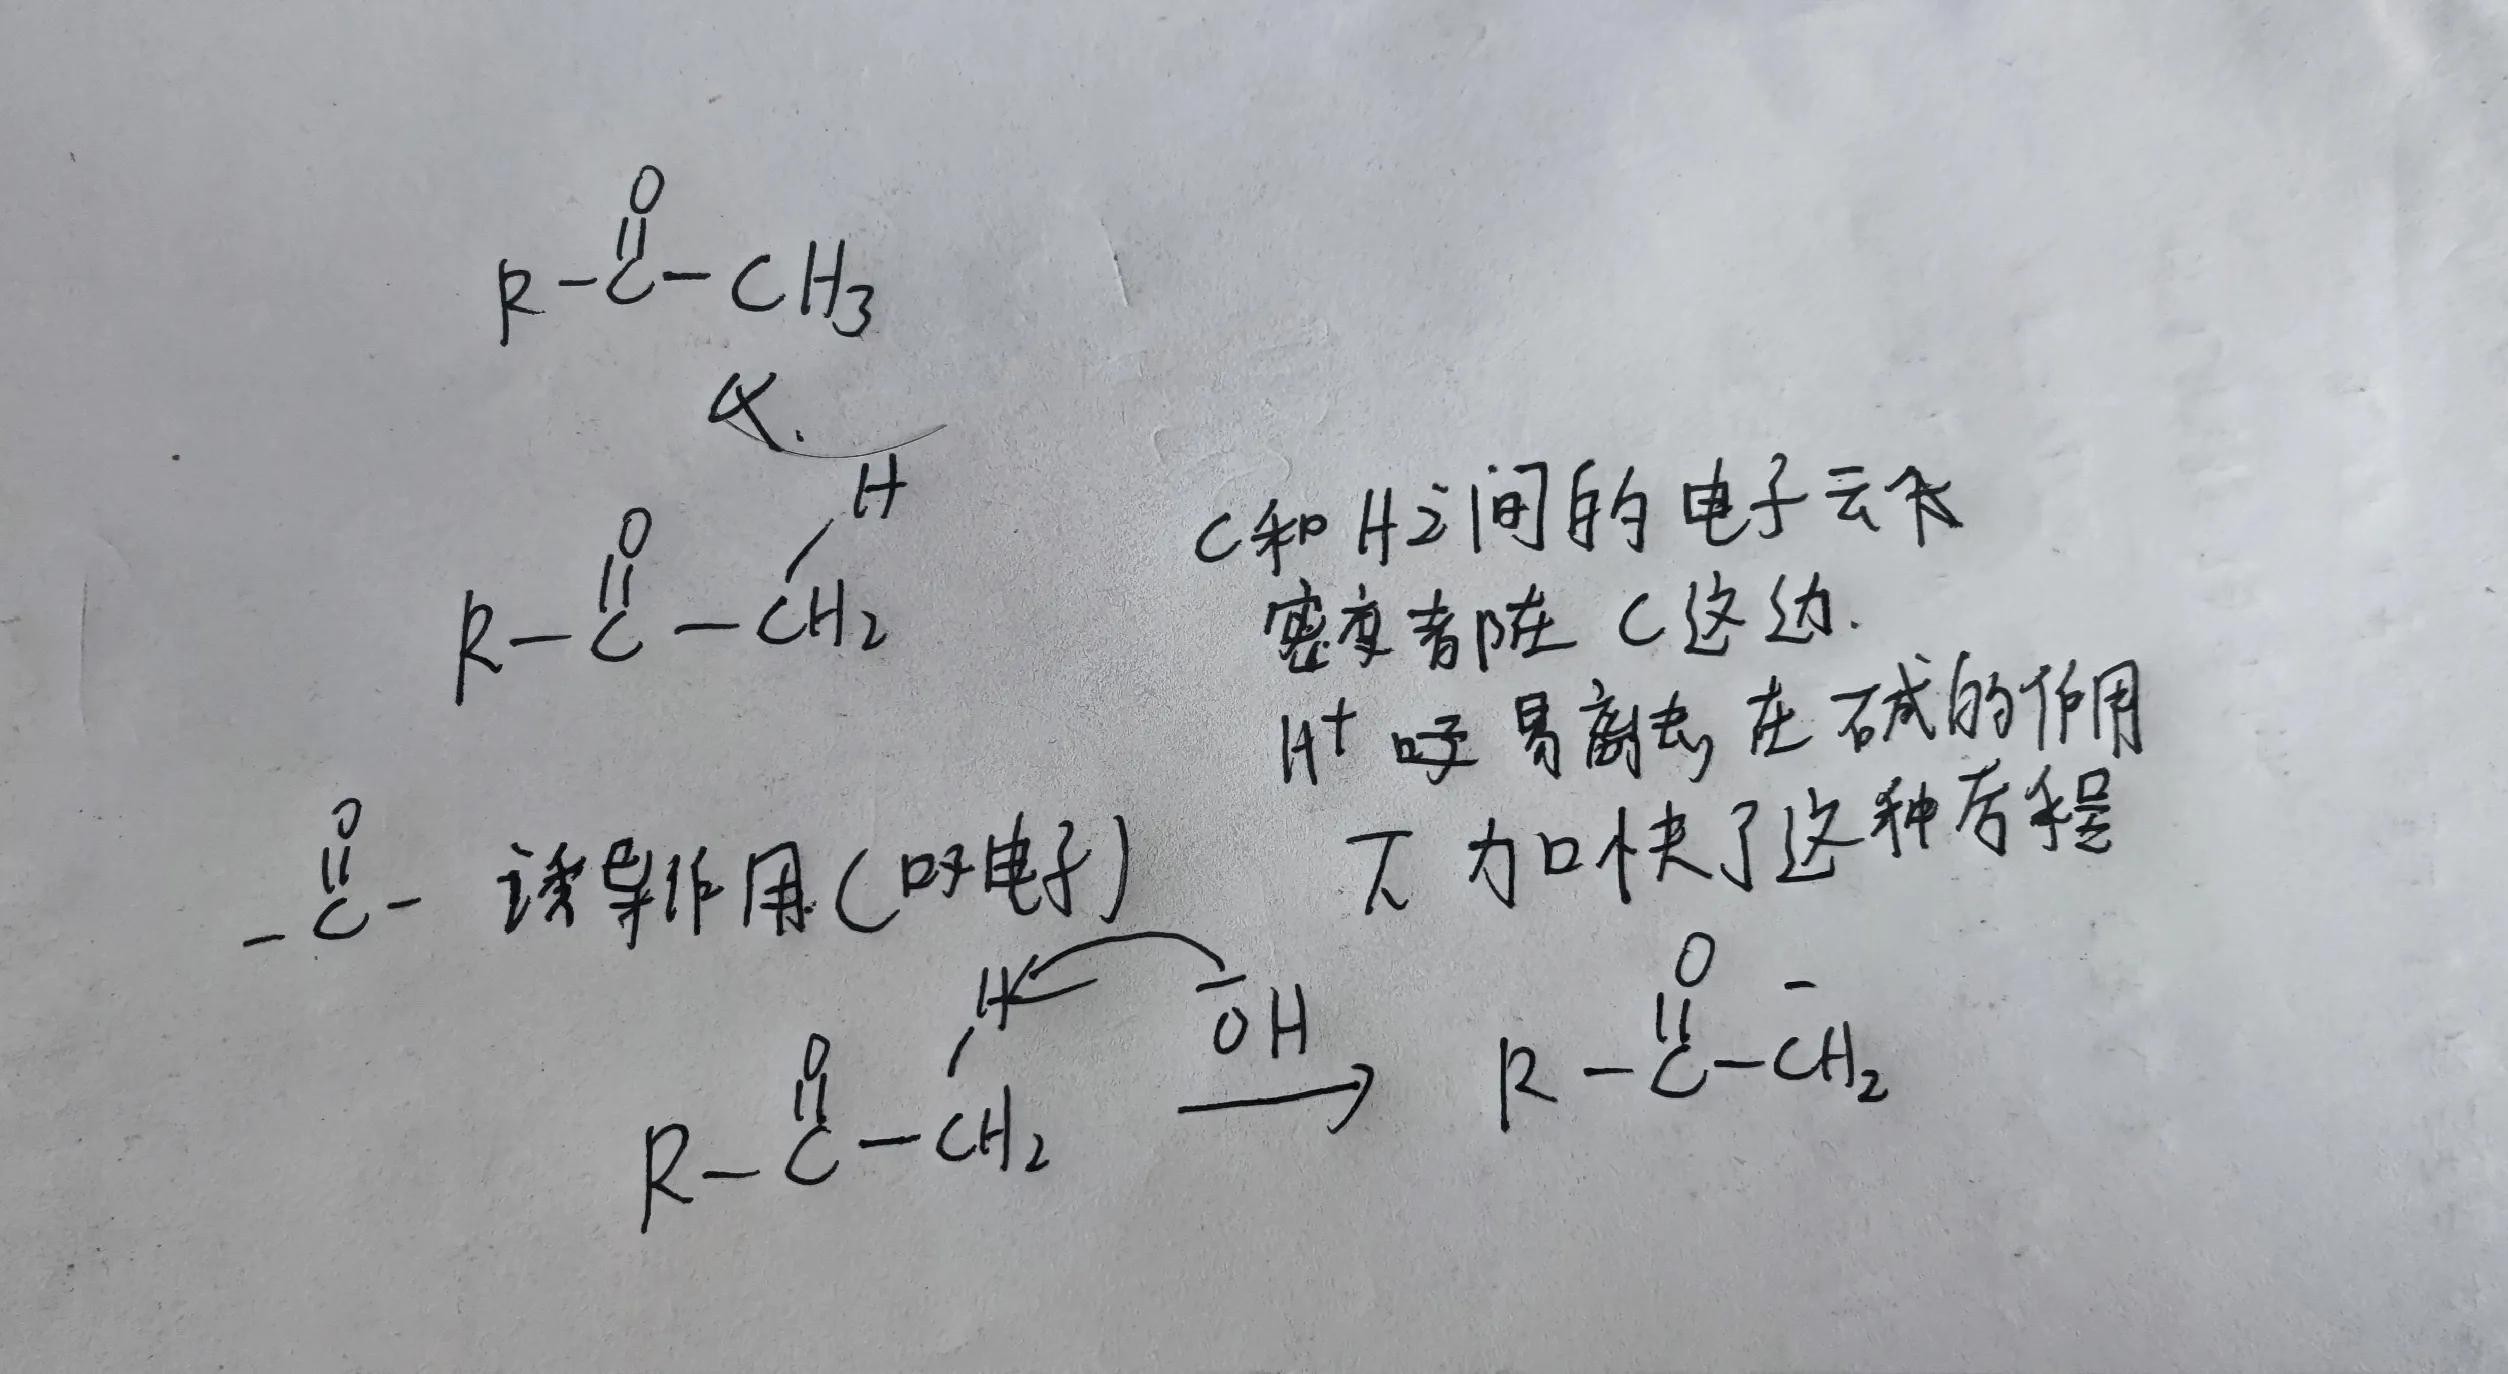 O
R-C-CH3
α.
H
O
R-C-CH2
C和H之间的电子云
密度都在C这边.
H+ 易离去,在碱的作用
下 加快了这种历程
O
-C- 诱导作用(吸电子)
H
-
OH
O
R-C-CH2
O
-
R-C-CH2